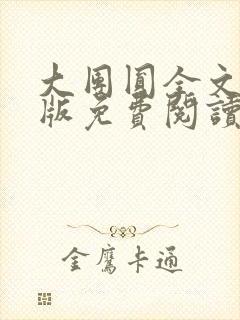 大團圓全文
版免費閱讀
金鷹卡通